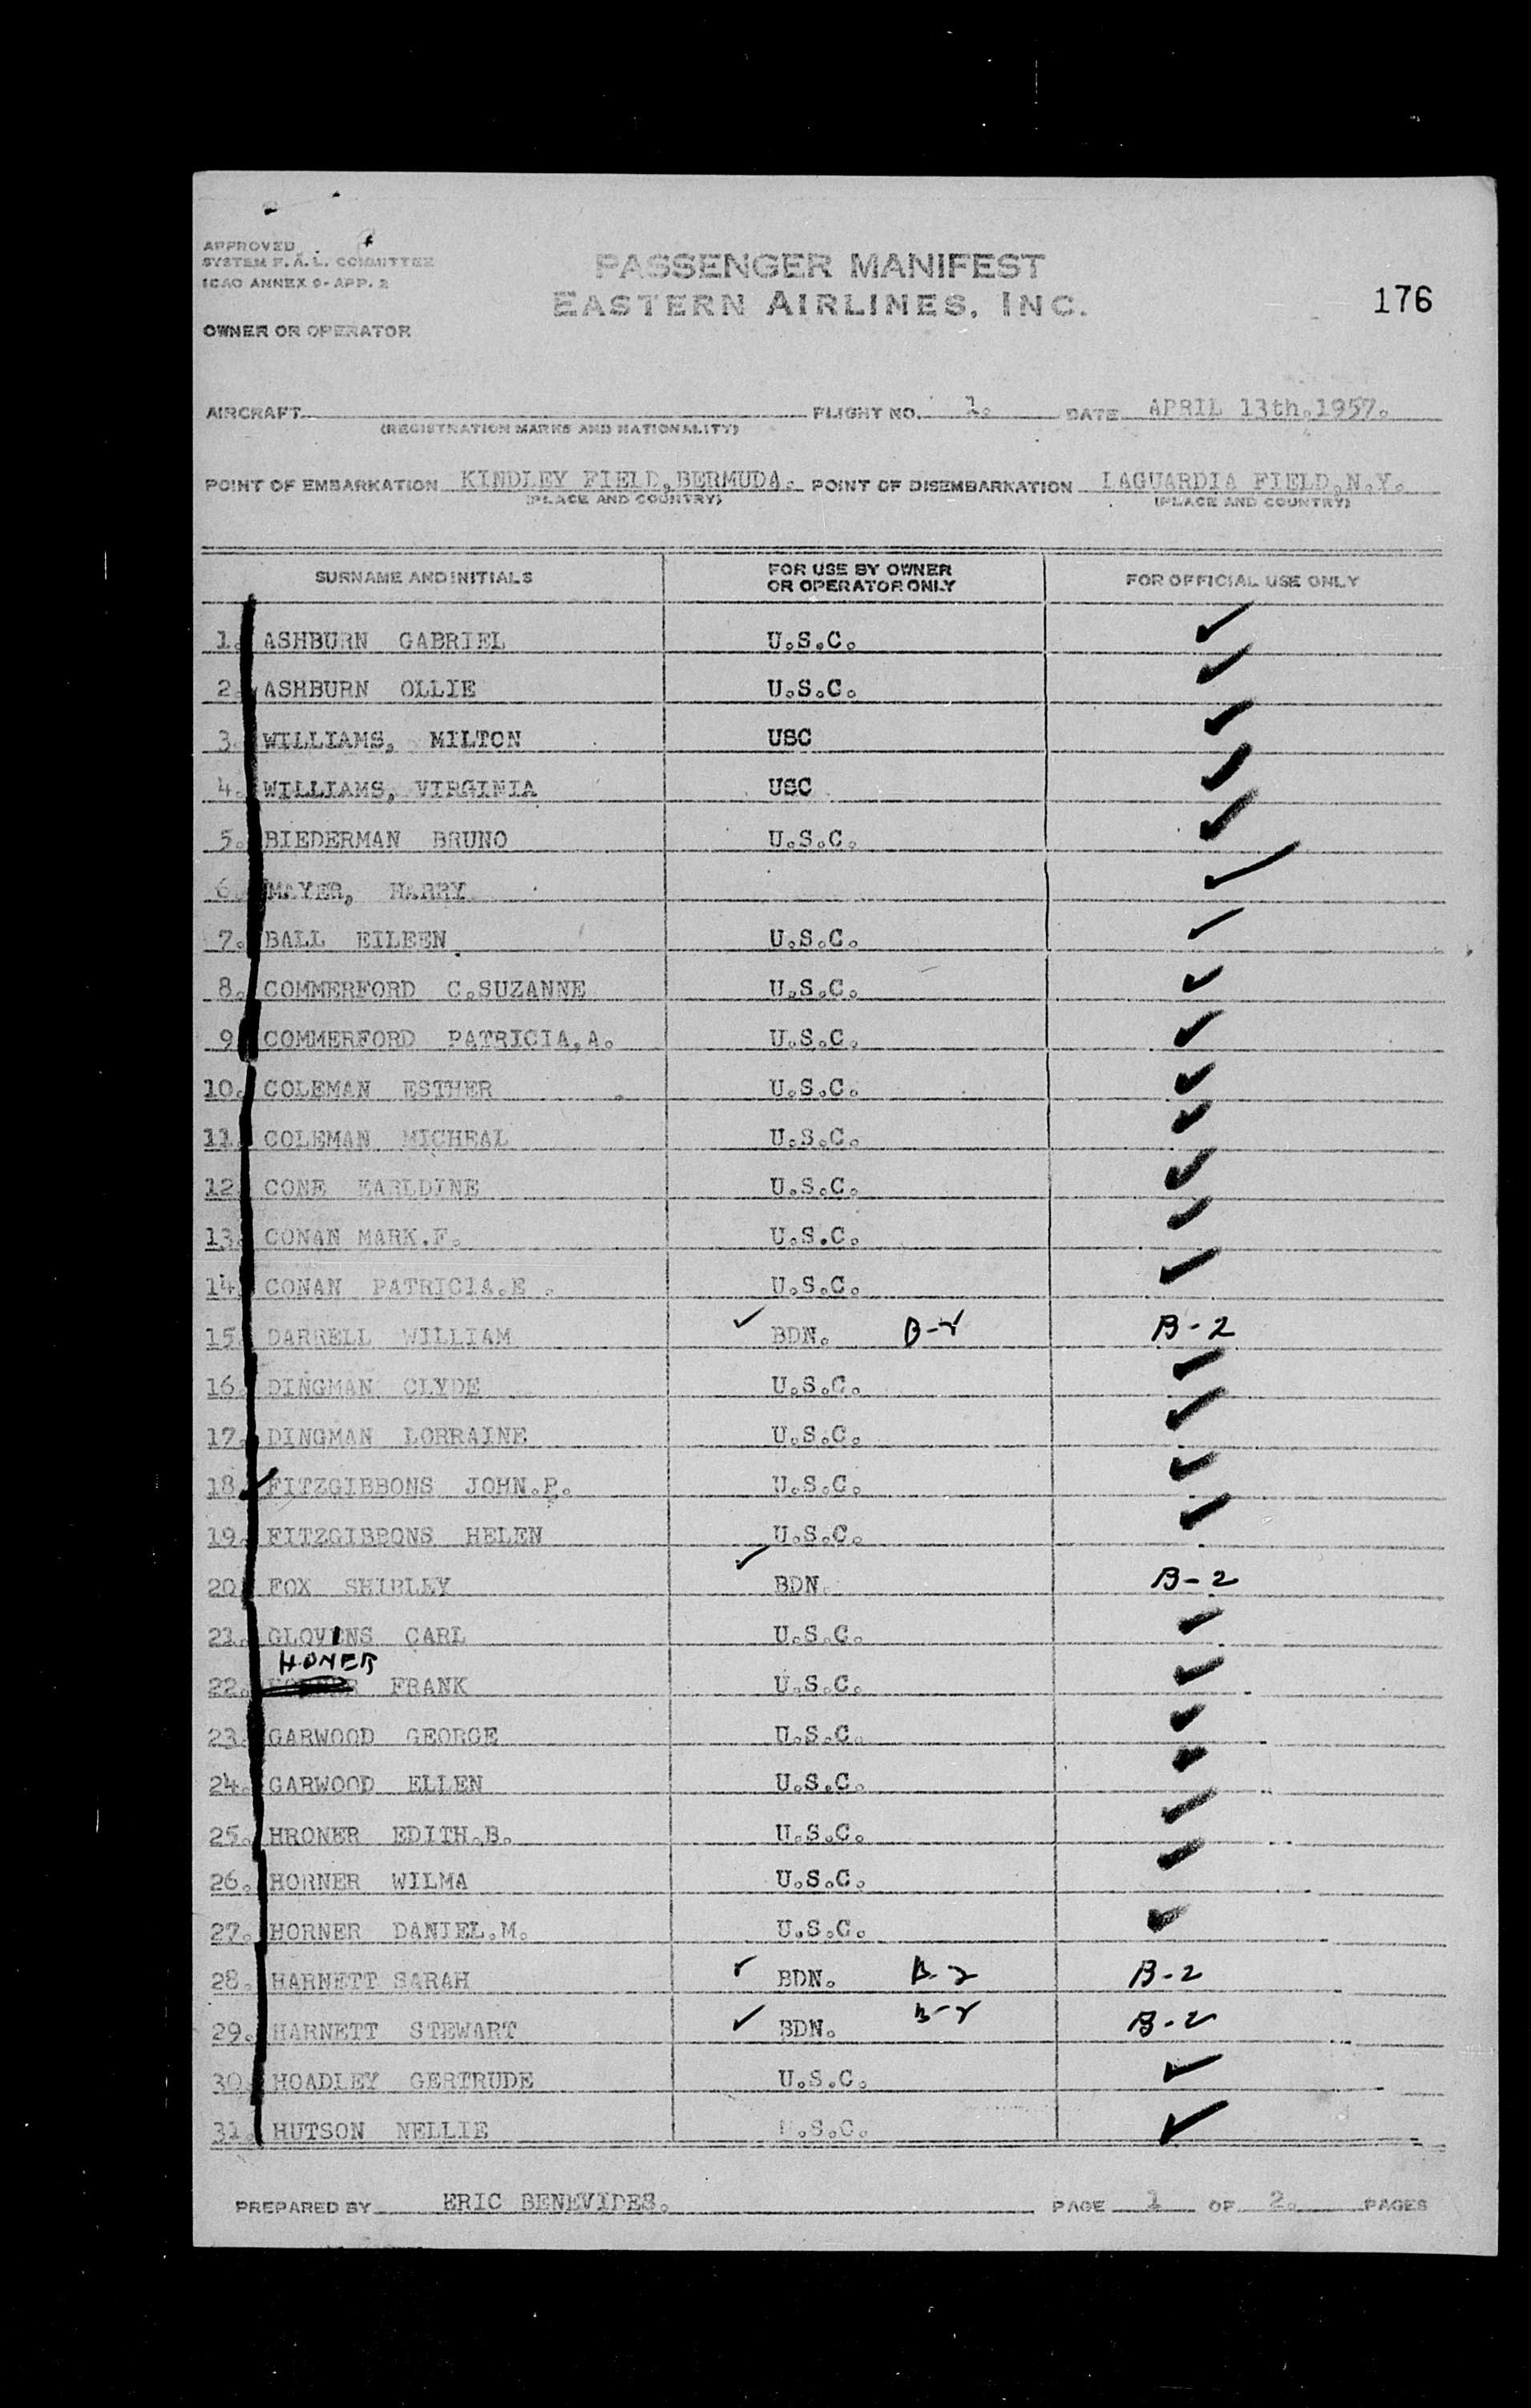 APPROVED
SYSTEM F.A.L. COMMITTEE
ICAO ANNEX 9-APP. 2
PASSENGER MANIFEST
EASTERN AIRLINES, INC.
176
OWNER OR OPERATOR
AIRCRAFT FLIGHT NO. 1. DATE APRIL 13th.1957.
(REGISTRATION MARKS AND NATIONALITY)
POINT OF EMBARKATION KINDLEY FIELD,BERMUDA. POINT OF DISEMBARKATION LAGUARDIA FIELD,N.Y.
(PLACE AND COUNTRY) (PLACE AND COUNTRY)
SURNAME AND INITIALS FOR USE BY OWNER OR OPERATOR ONLY FOR OFFICIAL USE ONLY
1. ASHBURN GABRIEL U.S.C. ✓
2. ASHBURN OLLIE U.S.C. ✓
3. WILLIAMS, MILTON USC ✓
4. WILLIAMS, VIRGINIA USC ✓
5. BIEDERMAN BRUNO U.S.C. ✓
6. MAYER, HARRY ✓
7. BALL EILEEN U.S.C. ✓
8. COMMERFORD C.SUZANNE U.S.C. ✓
9. COMMERFORD PATRICIA,A. U.S.C. ✓
10. COLEMAN ESTHER U.S.C. ✓
11. COLEMAN MICHEAL U.S.C. ✓
12. CONE EARLDINE U.S.C. ✓
13. CONAN MARK.F. U.S.C. ✓
14. CONAN PATRICIA.E. U.S.C. ✓
15. DARRELL WILLIAM ✓ BDN. B-2 B-2
16. DINGMAN CLYDE U.S.C. ✓
17. DINGMAN LORRAINE U.S.C. ✓
18. ✓ FITZGIBBONS JOHN.P. U.S.C. ✓
19. FITZGIBBONS HELEN U.S.C. ✓
20. FOX SHIRLEY ✓ BDN. B-2
21. GLOVINS CARL U.S.C. ✓
HONER
22. FRANK U.S.C. ✓
23. GARWOOD GEORGE U.S.C. ✓
24. GARWOOD ELLEN U.S.C. ✓
25. HRONER EDITH.B. U.S.C. ✓
26. HORNER WILMA U.S.C. ✓
27. HORNER DANIEL.M. U.S.C. ✓
28. HARNETT SARAH ✓ BDN. B-2 B-2
29. HARNETT STEWART ✓ BDN. B-2 B-2
30. HOADLEY GERTRUDE U.S.C. ✓
31. HUTSON NELLIE U.S.C. ✓
PREPARED BY ERIC BENEVIDES. PAGE 1 OF 2. PAGES